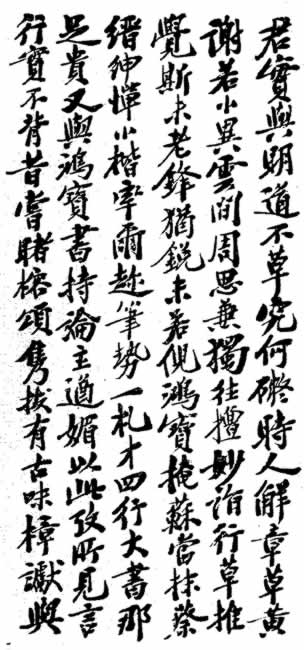 君實與明道不草究何礙時人解章草黃
謝若小異雲間周思兼獨往擅妙詣行草推
覺斯未老鋒猶銳未若倪鴻寶掩蘇當抹蔡
縉紳憚小楷率爾趂筆勢一札才四行大書那
足貴又與鴻寶書持論主遒媚以此攷所見言
行實不背昔嘗睹榕頌雋拔有古味樟讞與